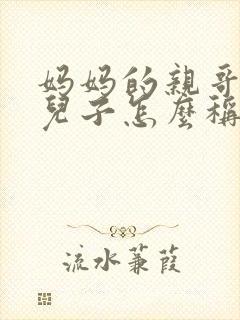 妈妈的親哥
兒子怎麼稱
流水蒹葭